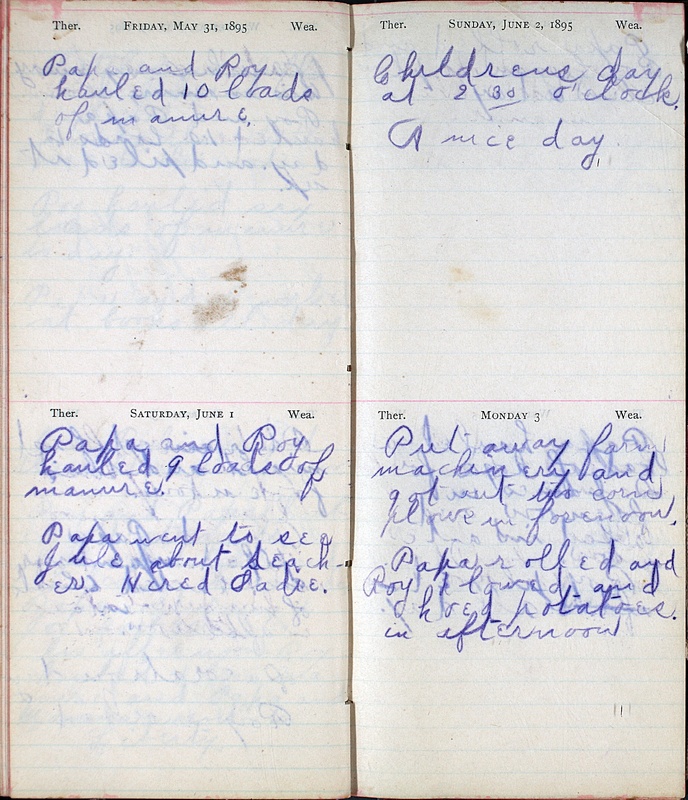 Ther. FRIDAY, MAY 31, 1895 Wea.
Papa and Roy
hauled 10 loads
of manure.
Ther. SATURDAY, JUNE 1 Wea.
Papa and Roy
hauled 9 loads of
manure.
Papa went to see
Jule about Teach-
er. Hired Sadie.
Ther. SUNDAY, JUNE 2, 1895 Wea.
Childrens day
at 2 30 O'clock.
A nice day.
Ther. MONDAY 3 Wea.
Put away farm
machinery and
got out the corn
plow in forenoon.
Papa rolled and
Roy plowed and
hoed potatoes.
in afternoon